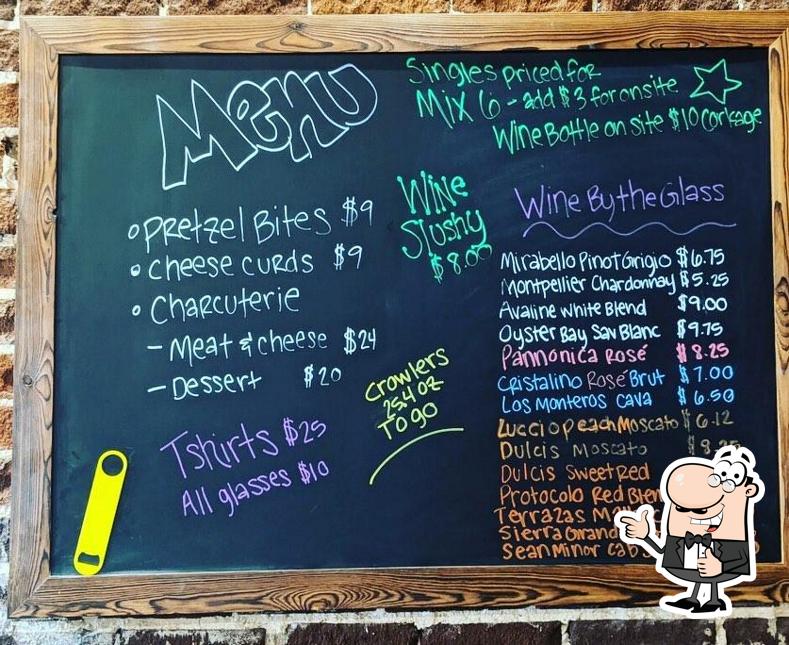 Menu
Pretzel Bites $9
Cheese curds $9
Charcuterie
- Meat & cheese $24
- Dessert $20
Tshirts $25
All glasses $10
Singles priced for
Mix 6 - add $3 for onsite
Wine Bottle on site $10 Corkage
Wine
Slushy
$8.00
Crowlers
25.4 oz
To go
Wine By the Glass
Mirabello Pinot Grigio $6.75
Montpellier Chardonnay $5.25
Avaline White Blend $9.00
Oyster Bay Sav Blanc $9.75
Pannonica Rosé $8.25
Cristalino Rosé Brut $7.00
Los Monteros Cava $6.50
Luccio Peach Moscato $6.12
Dulcis Moscato
Dulcis Sweet Red
Protocolo Red
Terrazas
Sierra
Sean Minor Cab